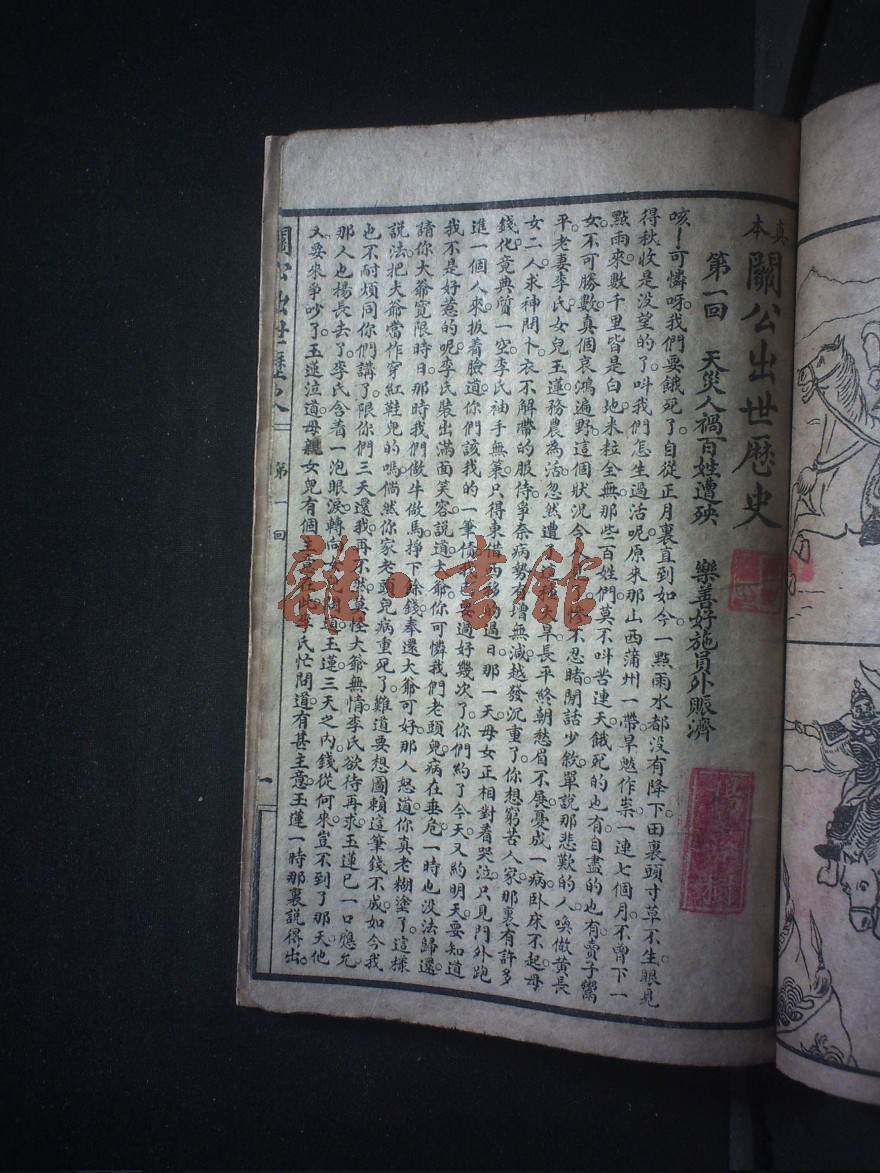 真本關公出世歷史
第一回 天災人禍百姓遭殃 樂善好施員外賑濟
咳！可憐呀。我們要餓死了。自從正月裏直到如今。一點雨水都没有降下。田裏頭寸草不生。眼見
得秋收是没望的了。叫我們怎生過活呢。原來那山西蒲州一帶。旱魃作祟。一連七個月。不曾下一
點雨來。數千里皆是白地。米粒全無。那些百姓們。莫不叫苦連天。餓死的也有。自盡的也有。賣子鬻
女。不可勝數。真個哀鴻遍野。這個狀況。今不忍睹。閒話少敘。單說那悲歎的人。喚做黄長
平。老妻李氏。女兒玉蓮。務農為活。忽然遭旱。長平終朝愁眉不展。憂成一病。臥床不起。母
女二人。求神問卜。衣不解帶的服侍。爭奈病勢有增無減。越發沉重了。你想窮苦人家。那裏有許多
錢化。竟典質一空。李氏袖手無策。只得東借西移的過日。那一天母女正相對着哭泣。只見門外跑
進一個人來。扳着臉道。你們該我的一筆債。要過好幾次了。你們約了今天。又約明天。要知道
我不是好惹的呢。李氏裝出滿面笑容說道。大爺你可憐我們老頭兒病在垂危。一時也没法歸還。
請你大爺寬限時日。那時我們做牛做馬。掙下餘錢。奉還大爺可好。那人怒道。你真老糊塗了。這樣
說法。把大爺當作穿紅鞋兒的嗎。倘然你家老頭兒病重死了。難道要想圖賴這筆錢不成。如今我
也不耐煩同你們講了。限你們三天還我。再不然。莫怪大爺無情。李氏欲待再求。玉蓮已一口應允。
那人也揚長去了。李氏含着一泡眼淚。轉向道。玉蓮三天之内。錢從何來。豈不到了那天。他
又要來爭吵了。玉蓮泣道。母親。女兒有個主意。李氏忙問道。有甚主意。玉蓮一時那裏說得出。
關公出世歷史 第一回 一
雜·書館